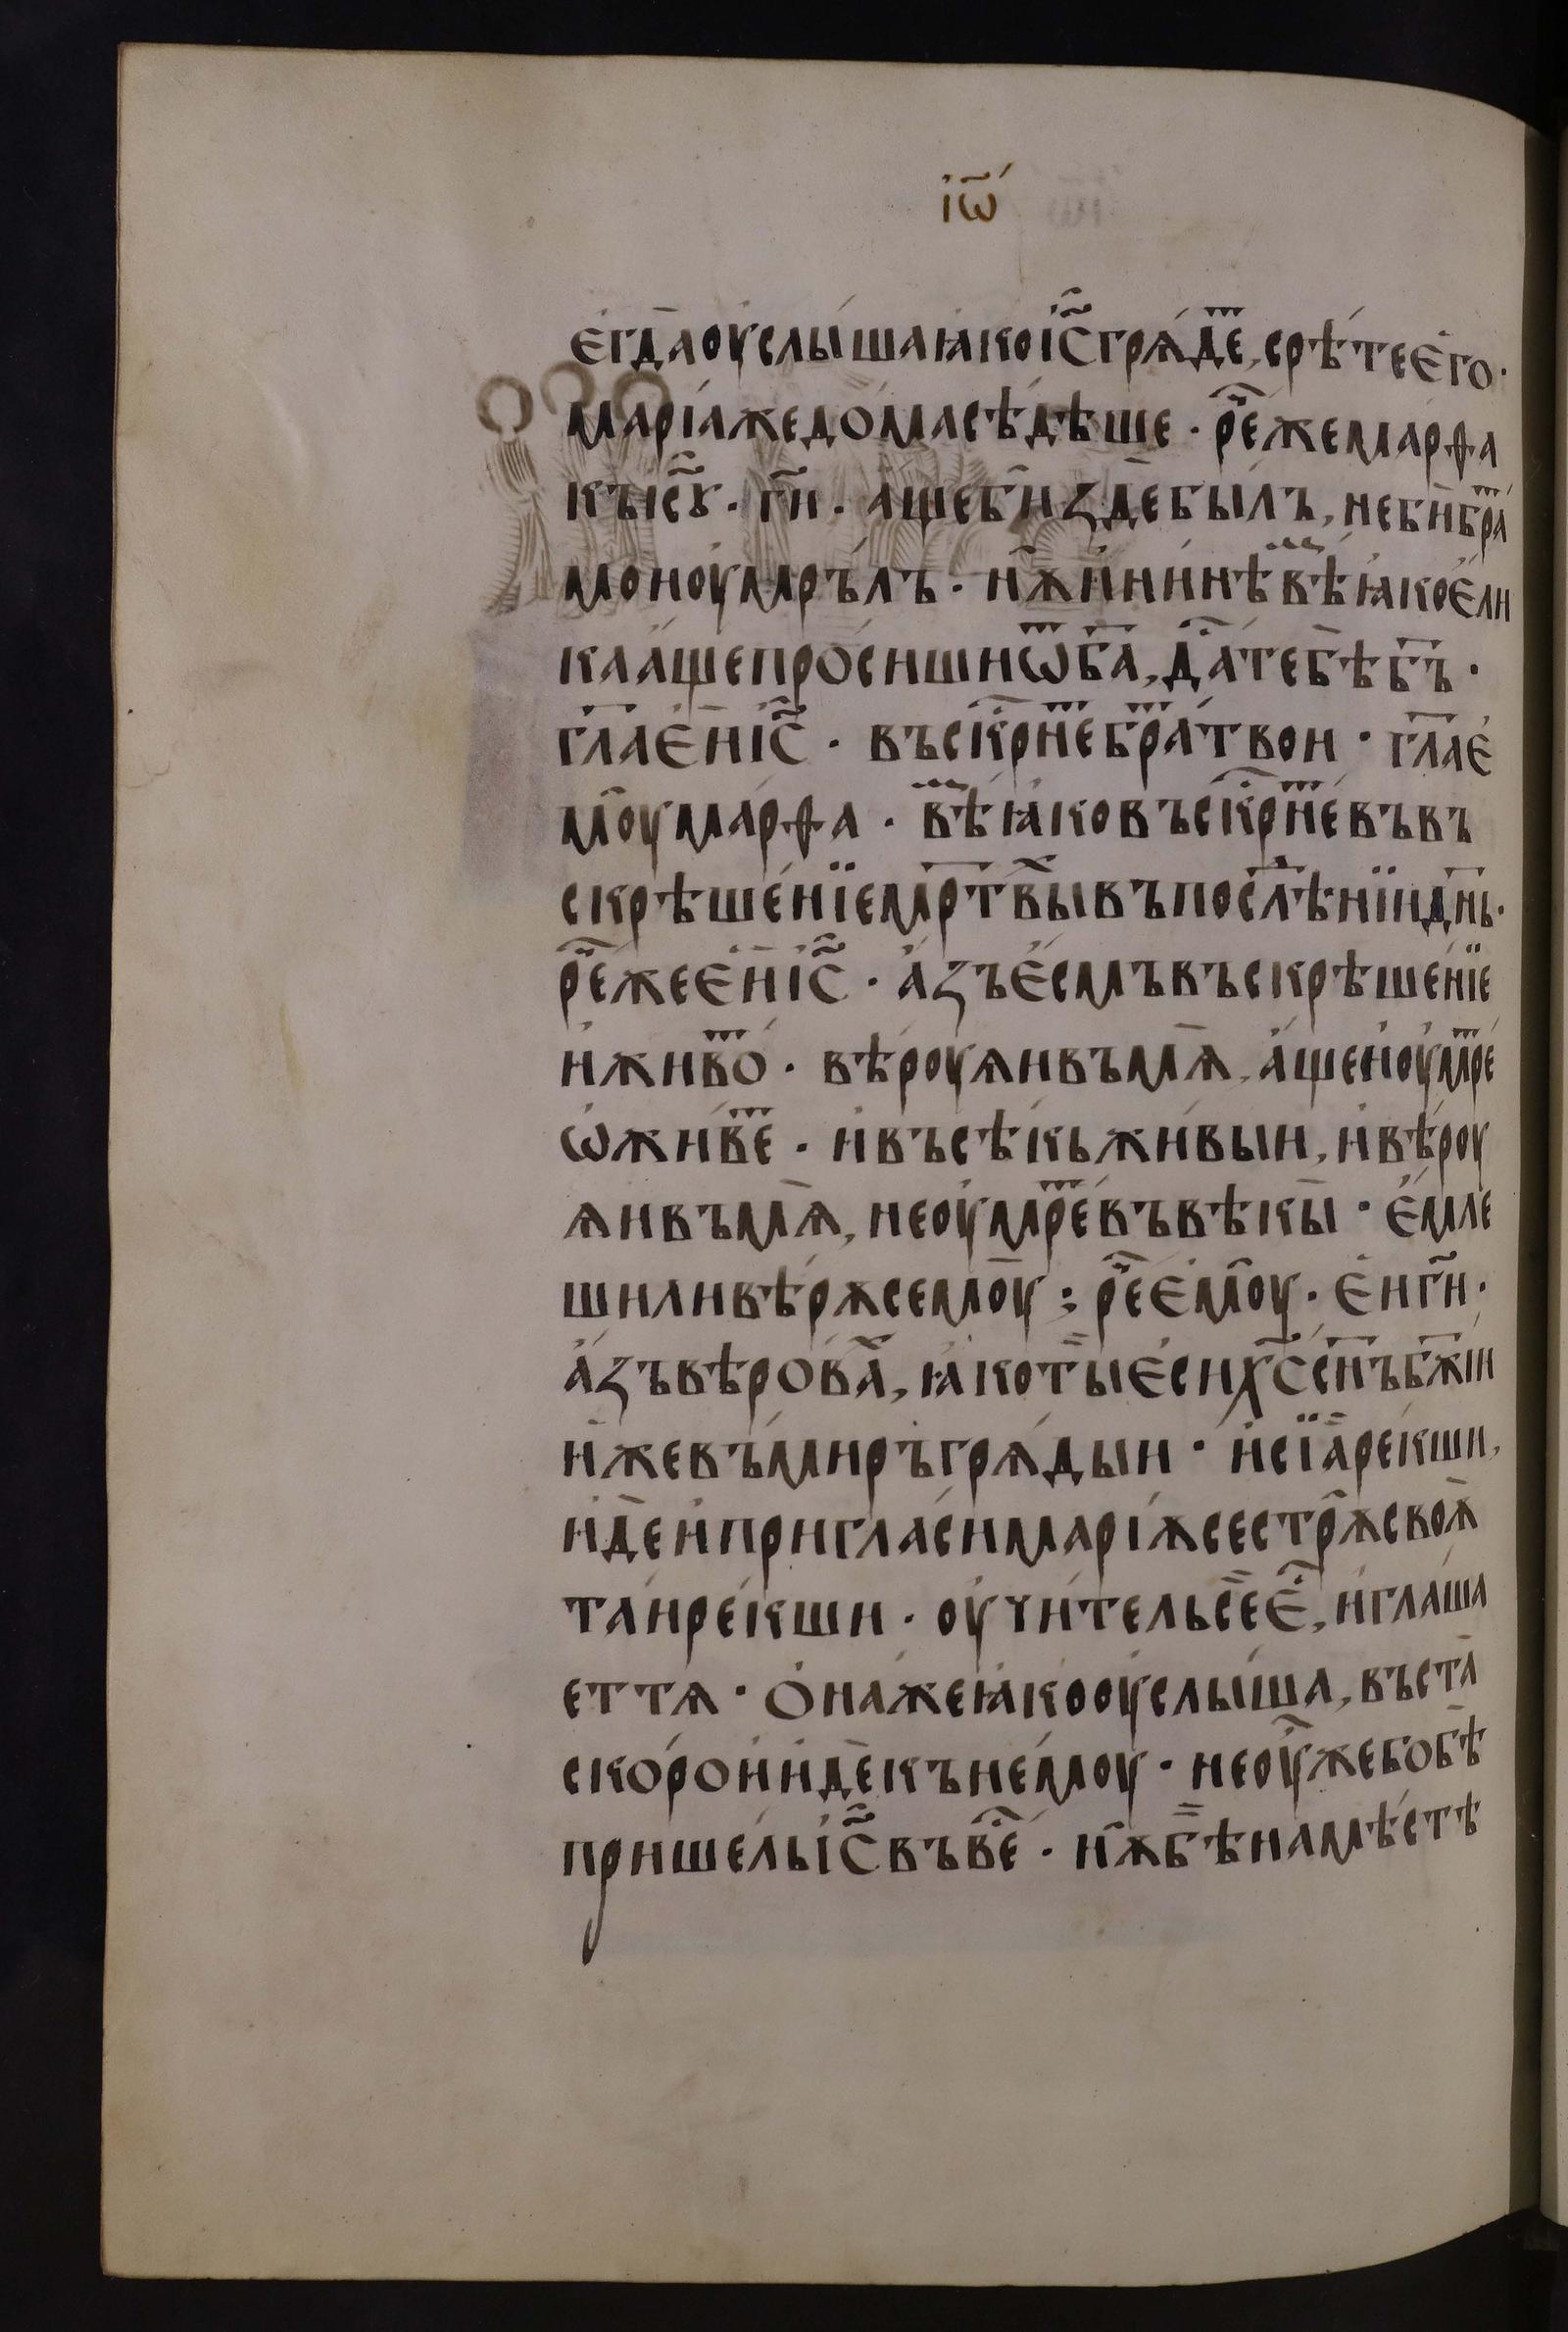 і҆ѡ҃
є҆гда̀оу҆слы́шаꙗ҆коі҆с҃грѧ́де, срѣ́теє҆го·
марі́ажедо́масѣдѣ́ше · ре҃жема́рѳа
къі҆с҃ꙋ · г҃и · а҆́щебѝздѐбы́лъ, небѝбра́
мо́ноу҆мръ́лъ · нѫ̀и҆ни́нѣвѣ́ꙗ҆коє҆́ли
каа҆́щепро́сишиѿб҃а, да́тебѣб҃ъ ·
гл҃ає҆́иі҆с҃ · въскрⷭ҇не́бра́тво́и · гл҃ає҆
моу̀ма́рѳа · вѣ́ꙗ҆ковъскрⷭ҇не́въвъ
скрѣше́нїемрт҃вывъпослѣ́нїидн҃ь·
ре҃жеє҆́иі҆с҃ · а҆́зъє҆́смъвъскрѣше́нїе
и҆живо́ · вѣ́роуѧивъмѧ̀, а҆́щеи҆оу҆мре́
ѡ҆живе́ · и҆въсѣ́кьжи́выи, и҆вѣ́роу
ѧивъмѧ̀, неоу҆мре́въвѣ́кы · є҆́мле
шиливѣ́рѫсемоу̀ ; ре҃є҆моу̀ · є҆́иг҃и ·
а҆́зъвѣ́рова, ꙗ҆коты̀є҆сихс҃сн҃ъбж҃іи
и҆́жевъми́ръгрѧды́и · и҆сїа̀ре́кши,
и҆́деи҆пригласи́марі́ѫсестрѫ̀своѫ̀
та́иреќши · оу҆чи́тельсѐє҆́, и҆глаша́
еттѧ · ѻ҆на́жеꙗ҆коѹслы́ша, въста̀
ско́рои҆и҆́декъне́моу · неоу҆̀жебобѣ̀
прише́льі҆с҃въве́ · нѫ̀бѣ̀намѣ́стѣ